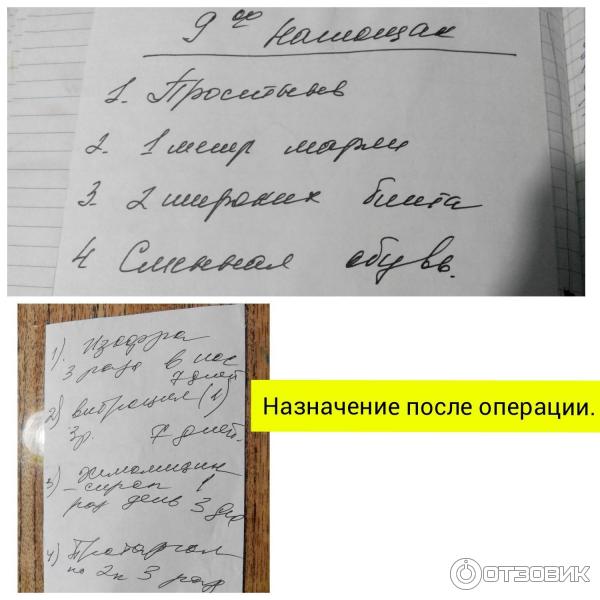 9⁰⁰ натощак
1. Простынь
2. 1 метр марли
3. 2 широких бинта
4 Сменная обувь.
1). Изофра
3 раза в нос
7 дней
2) вибрация (1)
3р. 7 дней.
3)
- сироп 1
раз день 3 дня
4) Протаргол
по 2к 3 раза
Назначение после операции.
ОТЗОВИК